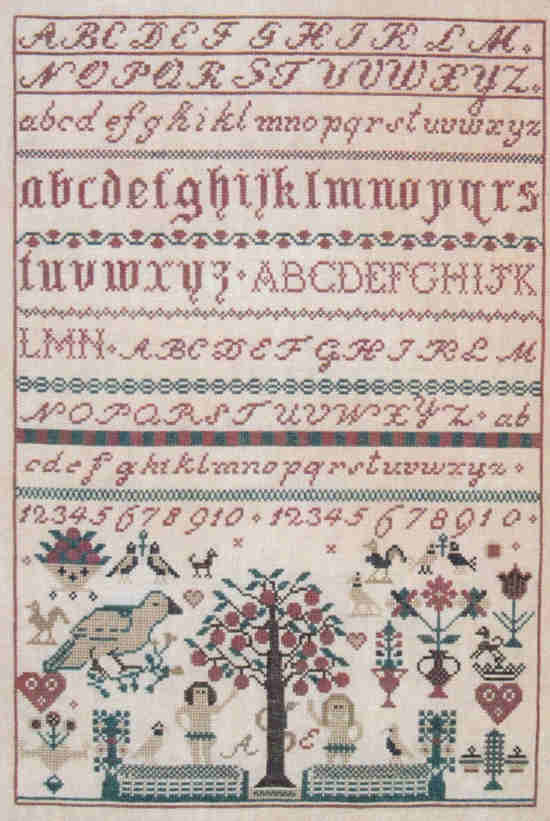 ABCDEF GHIKLM.
NOPQRSTUVWXYZ.
abcdefghiklmnopqrstuvwxyz
abcdefghijklmnopqrs
tuvwxyz·ABCDEFGHIJK
LMN·ABCDEFGHIKLM
NOPQRSTUVWXYZ·ab
cdefghiklmnopqrstuvwxyz·
12345678910·12345678910·
A E